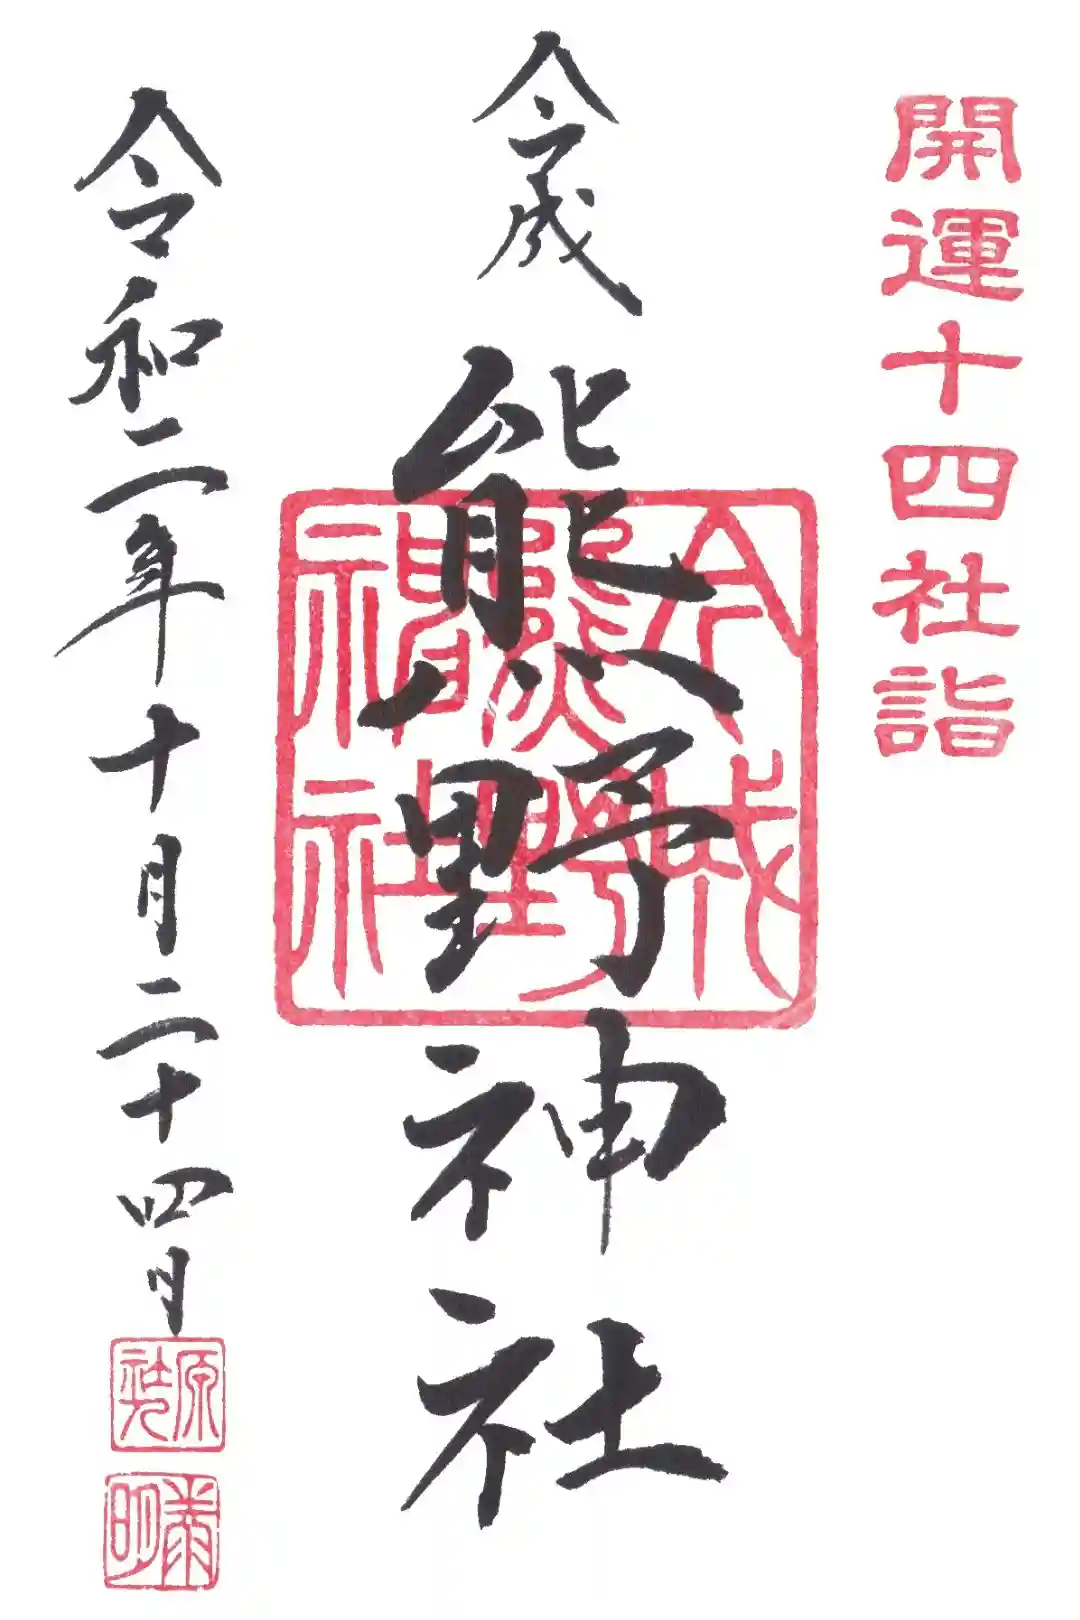 開運十四社詣
今成 熊野神社
今成熊野神社
令和二年十月二十四日